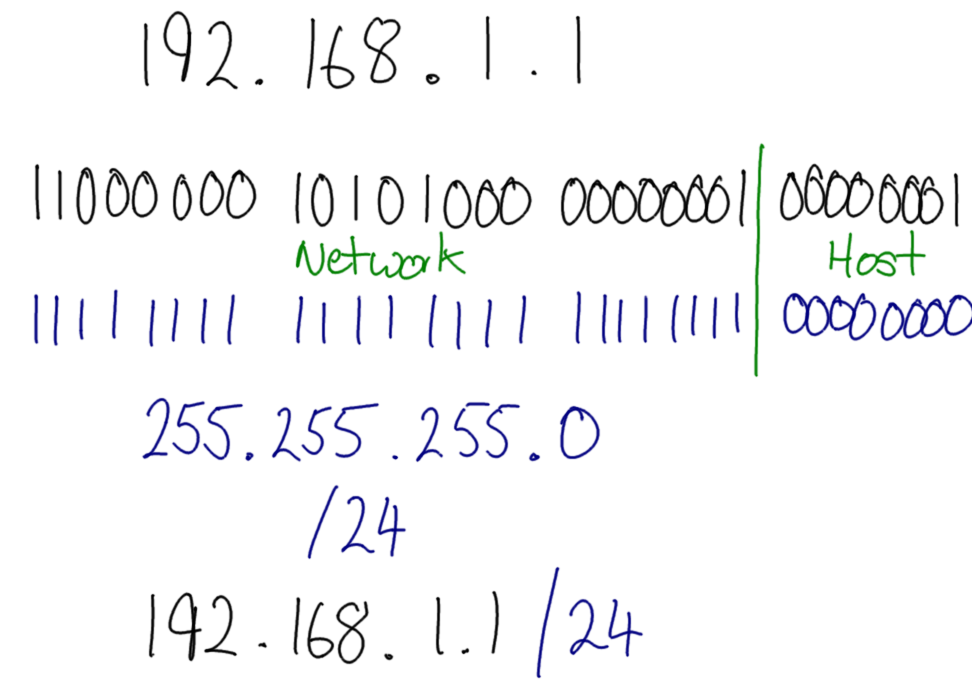 192.168.1.1
11000000 10101000 00000001 00000001
Network Host
11111111 11111111 11111111 00000000
255.255.255.0
/24
192.168.1.1/24